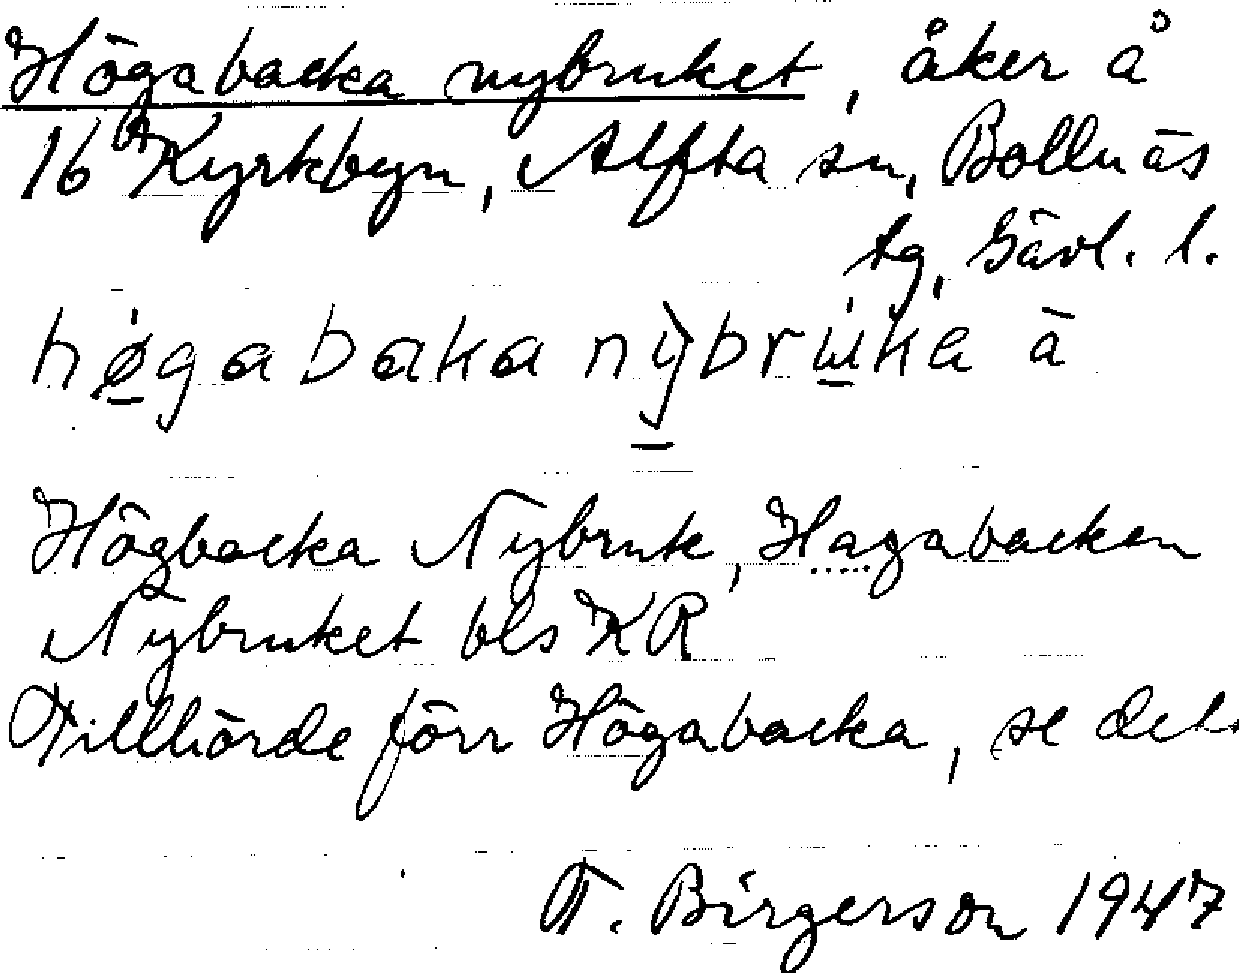 Högabacka nybruket, åker å
16 Kyrkbyn, Alfta sn, Bollnäs
tg, Gävl. l.
høgabaka nỳbruka ā
Högbacka Nybruk, Hagabacken
Nybruket bls KR
Tillhörde förr Högabacka, se det.
T. Birgerson 1947